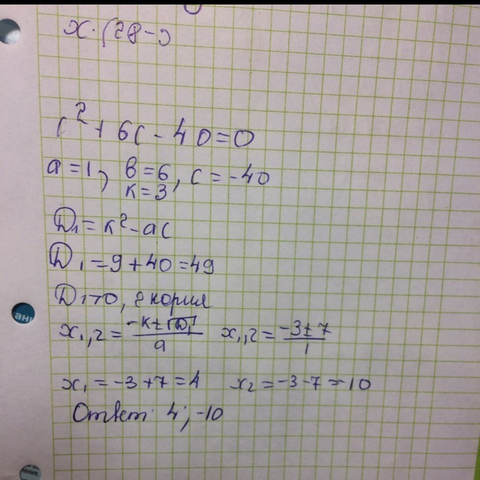 x·(28-
c²+6c-40=0
a=1, в=6, c=-40
к=3
D₁=к²-ac
D₁=9+40=49
D₁>0, 2 корня
x₁,₂=(-к±√D₁)/a x₁,₂=(-3±7)/1
x₁=-3+7=4 x₂=-3-7=-10
Ответ: 4; -10